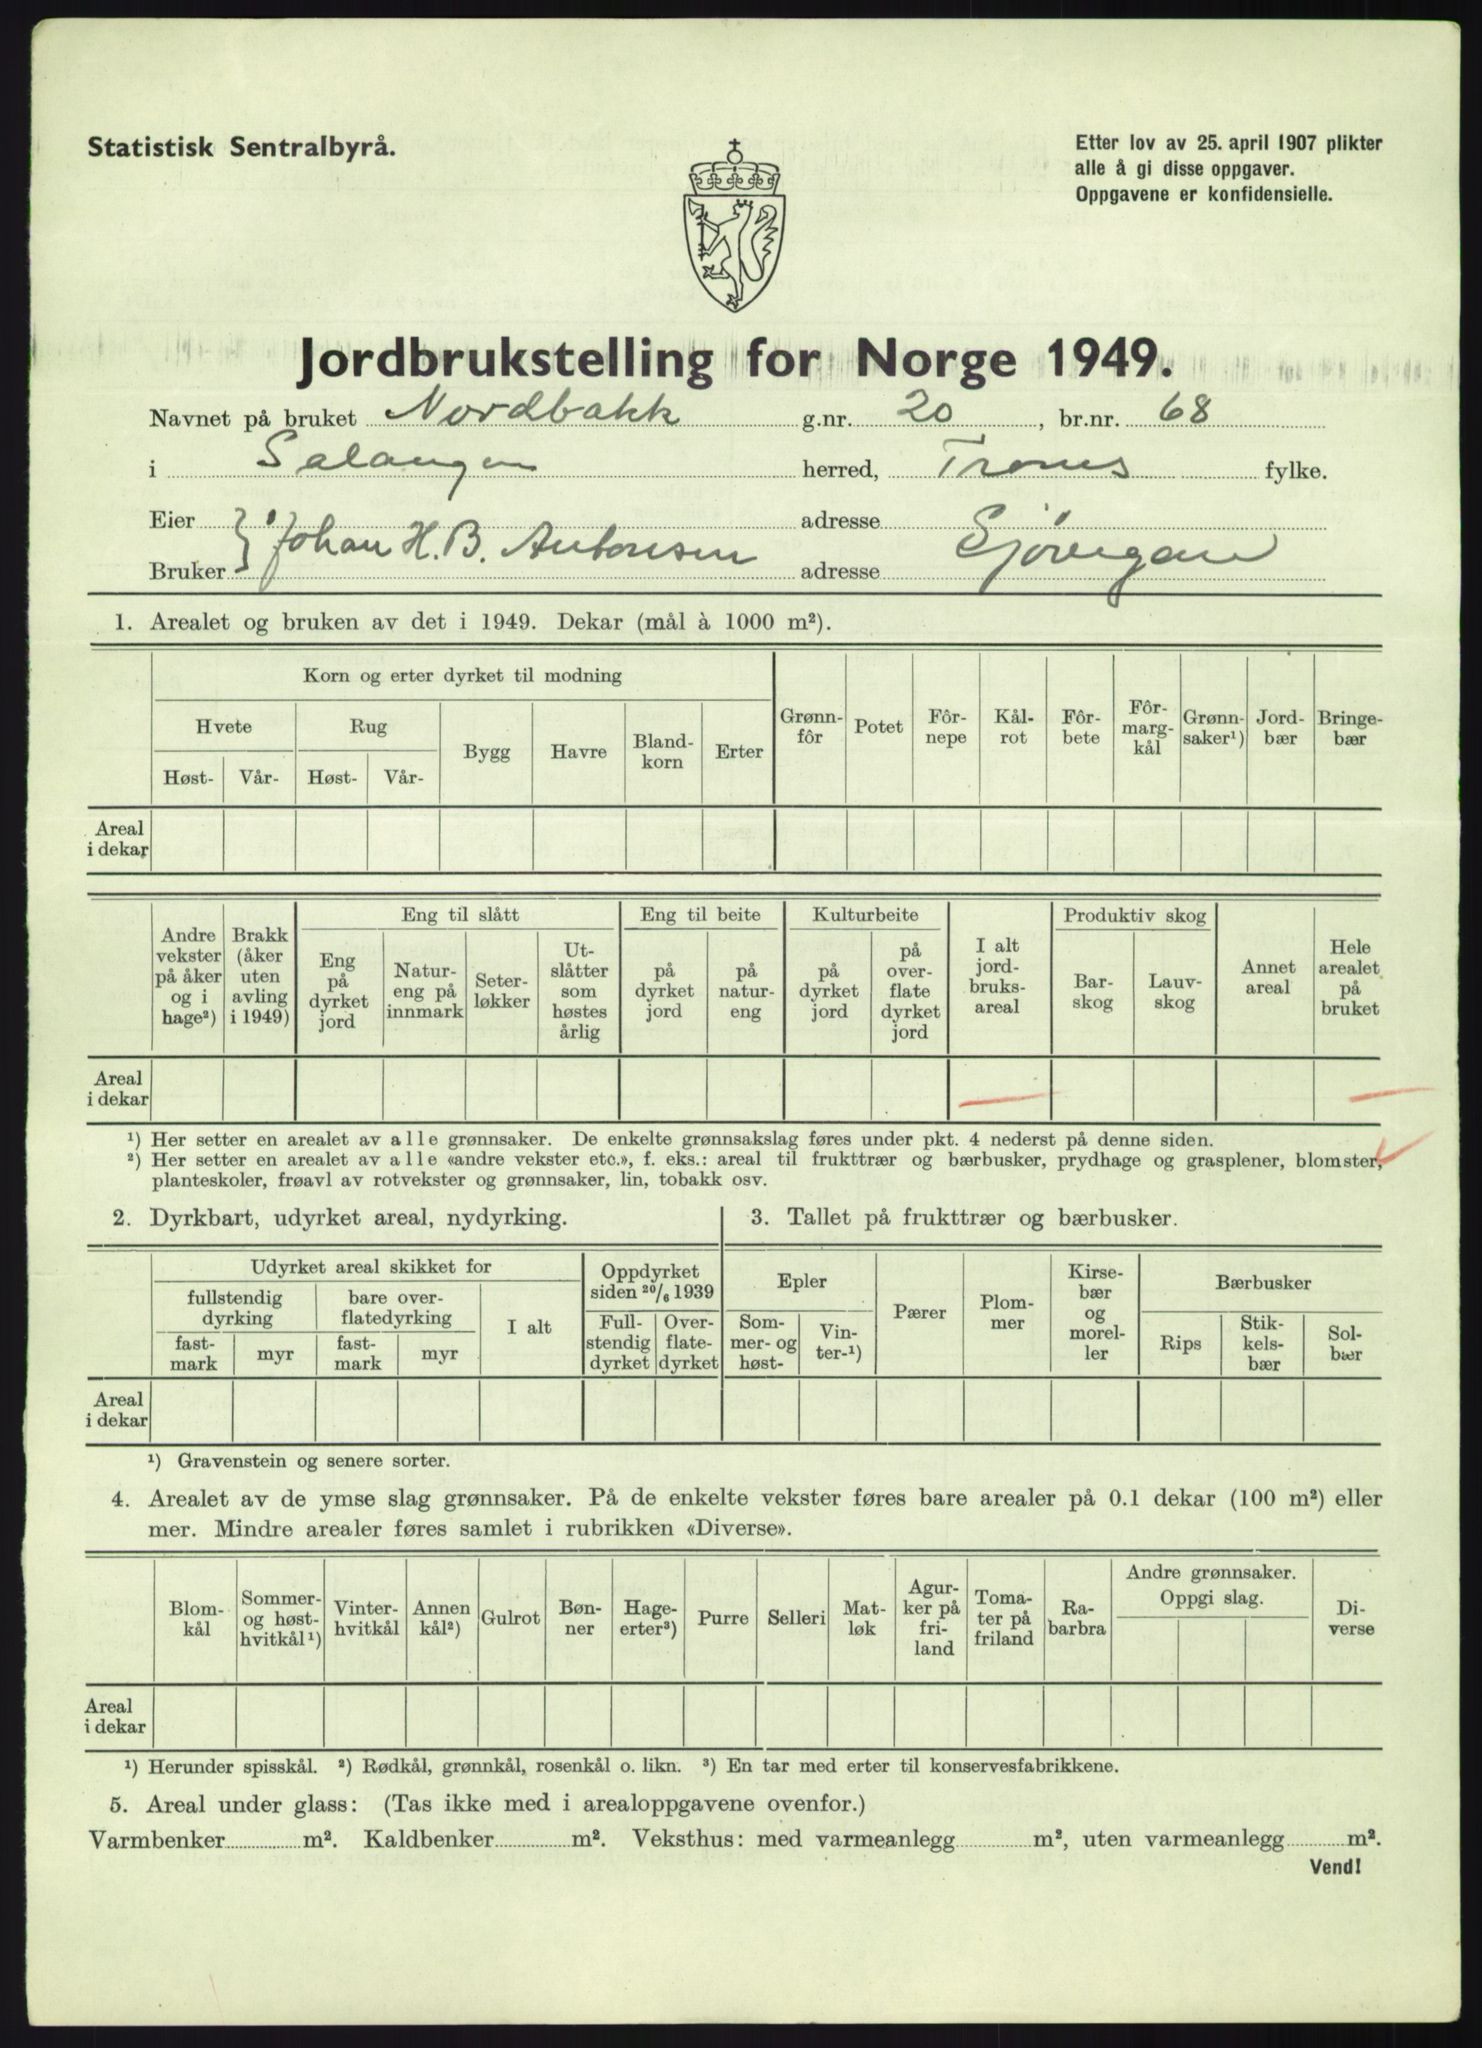 Statistisk Sentralbyrå.
Etter lov av 25. april 1907 plikter
alle å gi disse oppgaver.
Oppgavene er konfidensielle.
Jordbrukstelling for Norge 1949.
Navnet på bruket Nordbakk g.nr. 20, br.nr. 68
i Salangen herred, Troms fylke.
Eier } Johan H. B. Antonsen adresse Sjøvegan
Bruker adresse
1. Arealet og bruken av det i 1949. Dekar (mål à 1000 m²).
Korn og erter dyrket til modning
Hvete Rug Bygg Havre Bland-korn Erter Grønn-fôr Potet Fôr-nepe Kål-rot Fôr-bete Fôr-marg-kål Grønn-saker¹) Jord-bær Bringe-bær
Høst- Vår- Høst- Vår-
Areal
i dekar
Eng til slått Eng til beite Kulturbeite Produktiv skog
Andre vekster på åker og i hage²) Brakk (åker uten avling i 1949) Eng på dyrket jord Natur-eng på innmark Seter-løkker Ut-slåtter som høstes årlig på dyrket jord på natur-eng på dyrket jord på over-flate dyrket jord I alt jord-bruks-areal Bar-skog Lauv-skog Annet areal Hele arealet på bruket
Areal
i dekar
¹) Her setter en arealet av alle grønnsaker. De enkelte grønnsakslag føres under pkt. 4 nederst på denne siden.
²) Her setter en arealet av alle «andre vekster etc.», f. eks.: areal til frukttrær og bærbusker, prydhage og grasplener, blomster,
planteskoler, frøavl av rotvekster og grønnsaker, lin, tobakk osv.
2. Dyrkbart, udyrket areal, nydyrking.
Udyrket areal skikket for Oppdyrket siden 20/6 1939
fullstendig dyrking bare over-flatedyrking I alt Full-stendig dyrket Over-flate-dyrket
fast-mark myr fast-mark myr
Areal
i dekar
3. Tallet på frukttrær og bærbusker.
Epler Pærer Plom-mer Kirse-bær og morel-ler Bærbusker
Som-mer- og høst- Vin-ter-¹) Rips Stik-kels-bær Sol-bær
¹) Gravenstein og senere sorter.
4. Arealet av de ymse slag grønnsaker. På de enkelte vekster føres bare arealer på 0.1 dekar (100 m²) eller
mer. Mindre arealer føres samlet i rubrikken «Diverse».
Blom-kål Sommer- og høst-hvitkål¹) Vinter-hvitkål Annen kål²) Gulrot Bøn-ner Hage-erter³) Purre Selleri Mat-løk Agur-ker på fri-land Toma-ter på friland Ra-barbra Andre grønnsaker. Oppgi slag. Di-verse
Areal
i dekar
¹) Herunder spisskål. ²) Rødkål, grønnkål, rosenkål o. likn. ³) En tar med erter til konservesfabrikkene.
5. Areal under glass: (Tas ikke med i arealoppgavene ovenfor.)
Varmbenker m². Kaldbenker m². Veksthus: med varmeanlegg m², uten varmeanlegg m².
Vend!